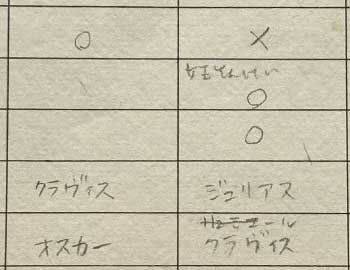 ○ ×
女王そんけい
○
○
クラヴィス ジュリアス
オスカー クラヴィス